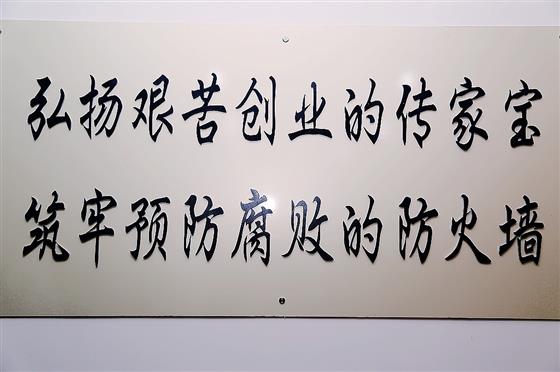 弘扬艰苦创业的传家宝
筑牢预防腐败的防火墙